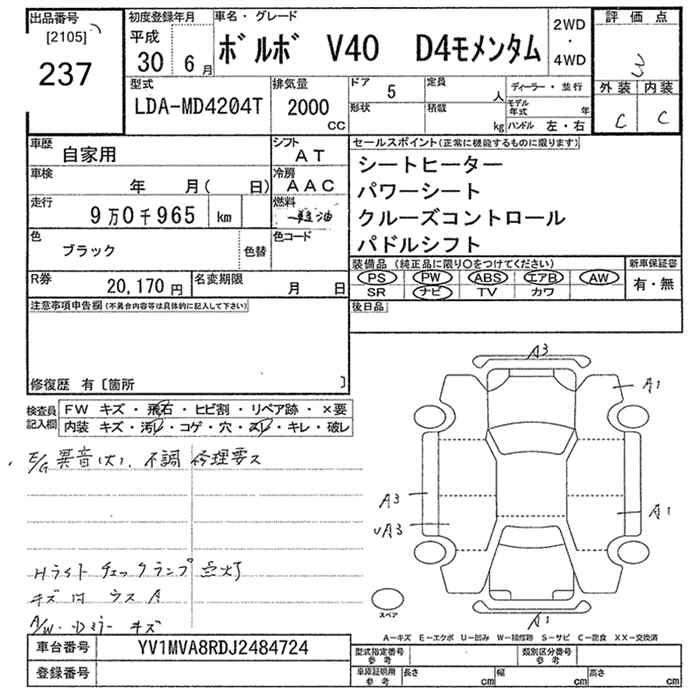 出品番号
[2105]
237
初度登録年月
平成
30年 6月
車名・グレード
ボルボ V40 D4モメンタム
2WD
・
4WD
評価点
3
外装 内装
C C
型式
LDA-MD4204T
排気量
2000
CC
ドア 5
定員 人
形状
積載 kg
ディーラー・並行
モデル年式 年
ハンドル 左・右
車歴
自家用
シフト
AT
車検
年 月( 日)
冷房
AAC
走行
9万0千965 km
燃料
軽油
色
ブラック
色替
色コード
R券
20,170円
名変期限
月 日
セールスポイント(正常に機能するものに限ります)
シートヒーター
パワーシート
クルーズコントロール
パドルシフト
装備品(純正品に限り○をつけてください)
PS PW ABS エアB AW
SR ナビ TV カワ
新車保証書
有・無
後日品
注意事項申告欄(不具合内容等は具体的に記入して下さい)
修復歴 有〔箇所 〕
検査員記入欄
FW キズ・飛石・ヒビ割・リペア跡・×要
内装 キズ・汚レ・コゲ・穴・スレ・キレ・破レ
E/G 異音(大)、不調 修理要ス
Hライト チェックランプ点灯
キズ凹 ウスA
A/W・Dミラー キズ
A3
A1
A3
UA3
A1
A1
スペア
A－キズ E－エクボ U－凹み W－補修跡 S－サビ C－腐食 XX－交換済
車台番号 YV1MVA8RDJ2484724
登録番号
型式指定番号
参考
類別区分番号
参考
車庫証明用
参考
長さ cm
幅 cm
高さ cm